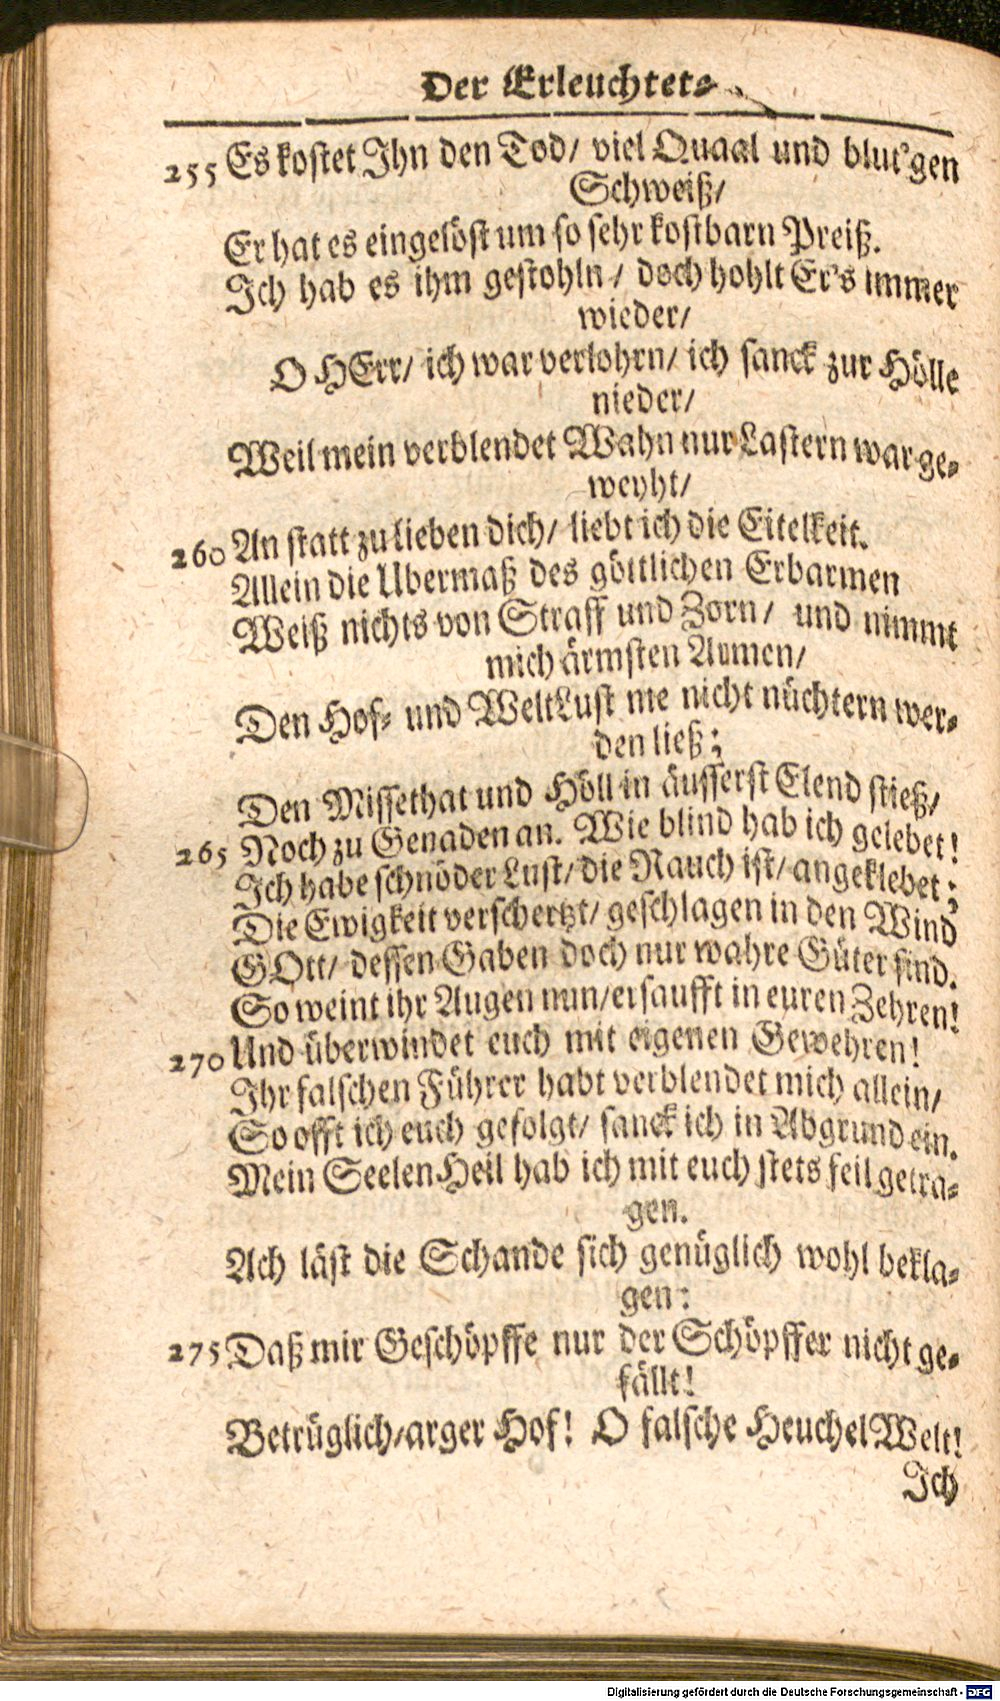 Der Erleuchtet⸗
255 Es kostet Ihn den Tod/ viel Quaal und blut'gen
Schweiß/
Er hat es eingelöst um so sehr kostbarn Preiß.
Ich hab es ihm gestohln/ doch hohlt Er's immer
wieder/
O HErr/ ich war verlohrn/ ich sanck zur Hölle
nieder/
Weil mein verblendet Wahn nur Lastern war ge⸗
weyht/
260 An statt zu lieben dich/ liebt ich die Eitelkeit.
Allein die Ubermaß des göttlichen Erbarmen
Weiß nichts von Straff und Zorn/ und nimmt
mich ärmsten Armen/
Den Hof⸗ und WeltLust nie nicht nüchtern wer⸗
den ließ;
Den Missethat und Höll in äusserst Elend stieß/
265 Noch zu Genaden an. Wie blind hab ich gelebet!
Ich habe schnöder Lust/ die Rauch ist/ angeklebet;
Die Ewigkeit verschertzt/ geschlagen in den Wind
GOtt/ dessen Gaben doch nur wahre Güter sind.
So weint ihr Augen nun/ ersaufft in euren Zehren!
270 Und überwindet euch mit eigenen Gewehren!
Ihr falschen Führer habt verblendet mich allein/
So offt ich euch gefolgt/ sanck ich in Abgrund ein.
Mein SeelenHeil hab ich mit euch stets feil getra⸗
gen.
Ach läst die Schande sich genüglich wohl bekla⸗
gen:
275 Daß mir Geschöpffe nur der Schöpffer nicht ge⸗
fällt!
Betrüglich/arger Hof! O falsche HeuchelWelt!
Ich
Digitalisierung gefördert durch die Deutsche Forschungsgemeinschaft - DFG